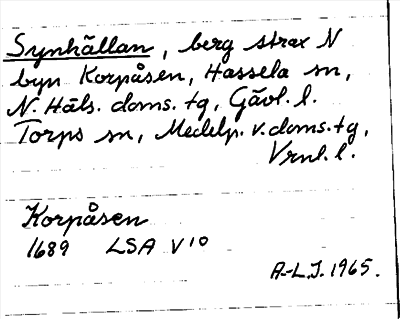 Synhällan, berg strax N
byn Korpåsen, Hassela sn,
N. Häls. doms. tg, Gävl. l.
Torps sn, Medelp. v. doms. tg,
Vrnl. l.
Korpåsen
1689 LSA V 10
A-L.J. 1965.